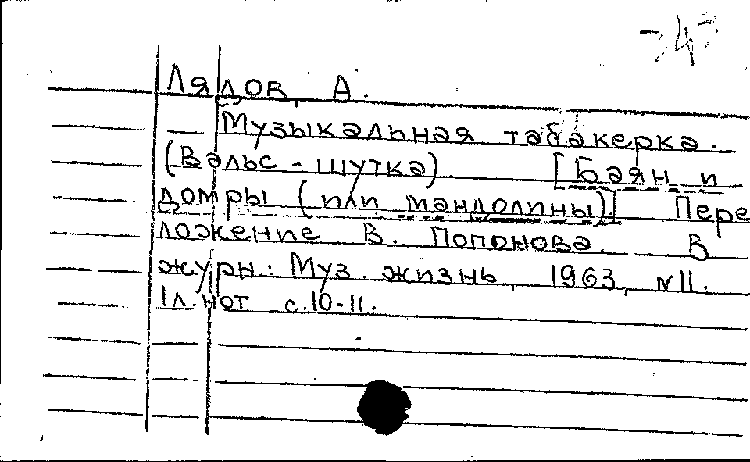 Лядов, А.
Музыкальная табакерка.
(Вальс - шутка) [Баян и
домры (или мандолины)] Пере
ложение В. Попонова. В
журн.: Муз. жизнь, 1963, №11.
1л. нот с.10-11.